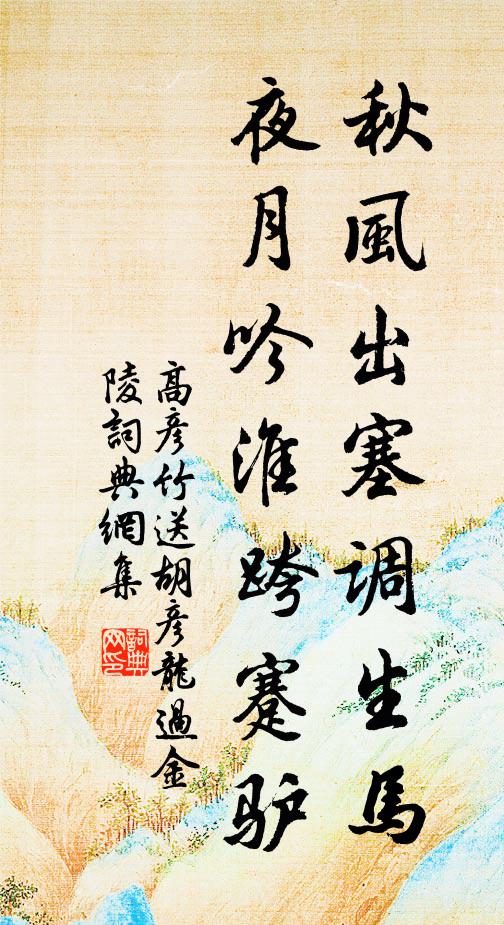 秋風出塞調生馬
夜月吟淮跨蹇驴
高彥竹送胡彥龍過金
陵詞典網集
詞典
网印